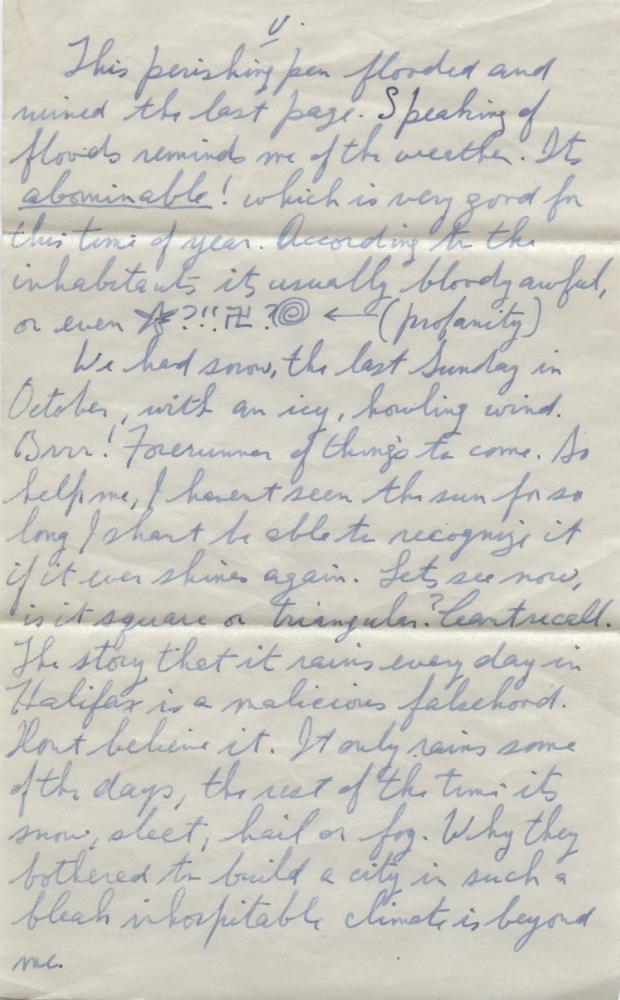 V.
This perishing pen flooded and
ruined the last page. Speaking of
floods reminds me of the weether. Its
abominable! which is very good for
this time of year. According to the
inhabitants its usually bloody awful,
or even ☆?!!卍?@ ← (profanity)
We had snow, the last Sunday in
October, with an icy, howling wind.
Brrr! Forerunner of things to come. So
help me, I havent seen the sun for so
long I shant be able to recognize it
if it ever shines again. Lets see now,
is it square or triangular? Cant recall.
The story that it rains every day in
Halifax is a malicious falsehood.
Dont believe it. It only rains some
of the days, the rest of the time its
snow, sleet, hail or fog. Why they
bothered to build a city in such a
bleak inhospitable climate is beyond
me.